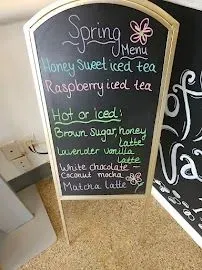 Spring
Menu
Honey Sweet iced tea
Raspberry iced tea
Hot or iced:
Brown Sugar, honey
Latte
Lavender vanilla
latte
White chocolate -
Coconut mocha
Matcha latte